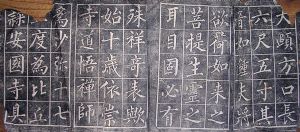 大頤方口長
六尺五寸其
音如鐘夫將
欲荷如來之
菩提生靈之
耳目固必有
殊祥奇表歟
始十歲依崇
寺道悟禪師
為沙彌十七
度為比丘
隸安國寺具